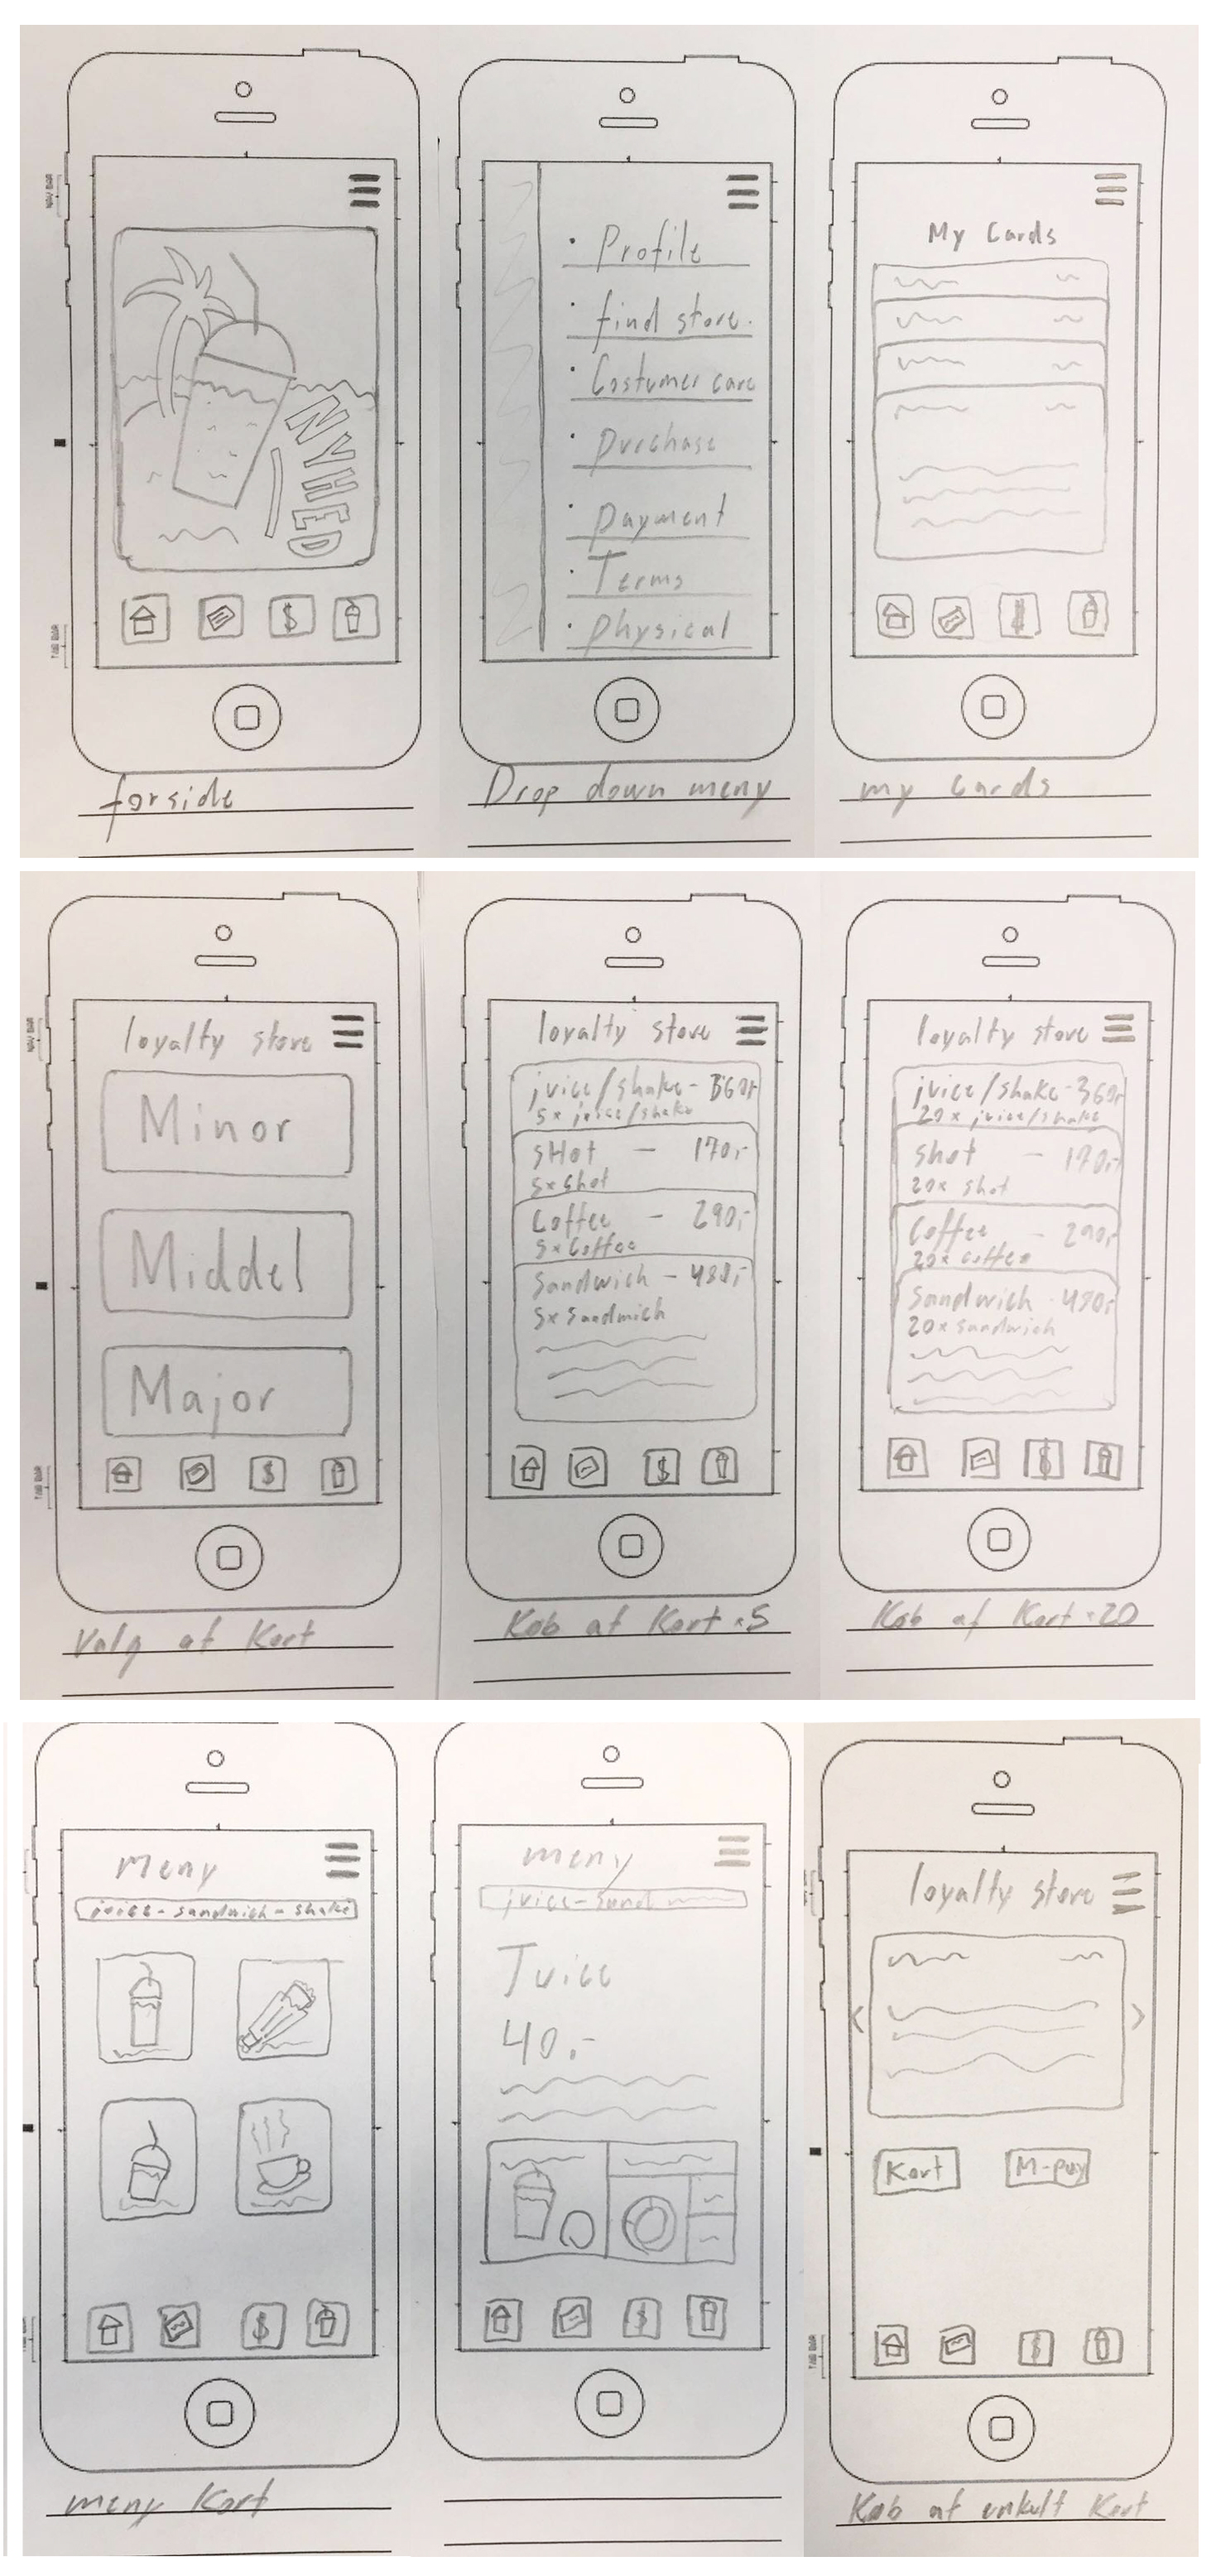 NYHED
forside
Profile
find store.
Costumer care
purchase
payment
Terms
physical
Drop down meny
My Cards
my Cards
loyalty store
Minor
Middel
Major
Valg af Kort
loyalty store
juice/shake - 360,-
5x juice/shake
SHot - 170,-
5x shot
Coffee - 290,-
5x Coffee
Sandwich - 480,-
5x Sandwich
Køb af Kort ×5
loyalty store
juice/shake - 360,-
20x juice/shake
shot - 170,-
20x shot
Coffee - 290,-
20x coffee
Sandwich - 480,-
20x sandwich
Køb af Kort ×20
Meny
juice - sandwich - shake
meny Kort
meny
juice - sand
Juice
40,-
loyalty store
Kort
M-pay
Køb af enkelt Kort